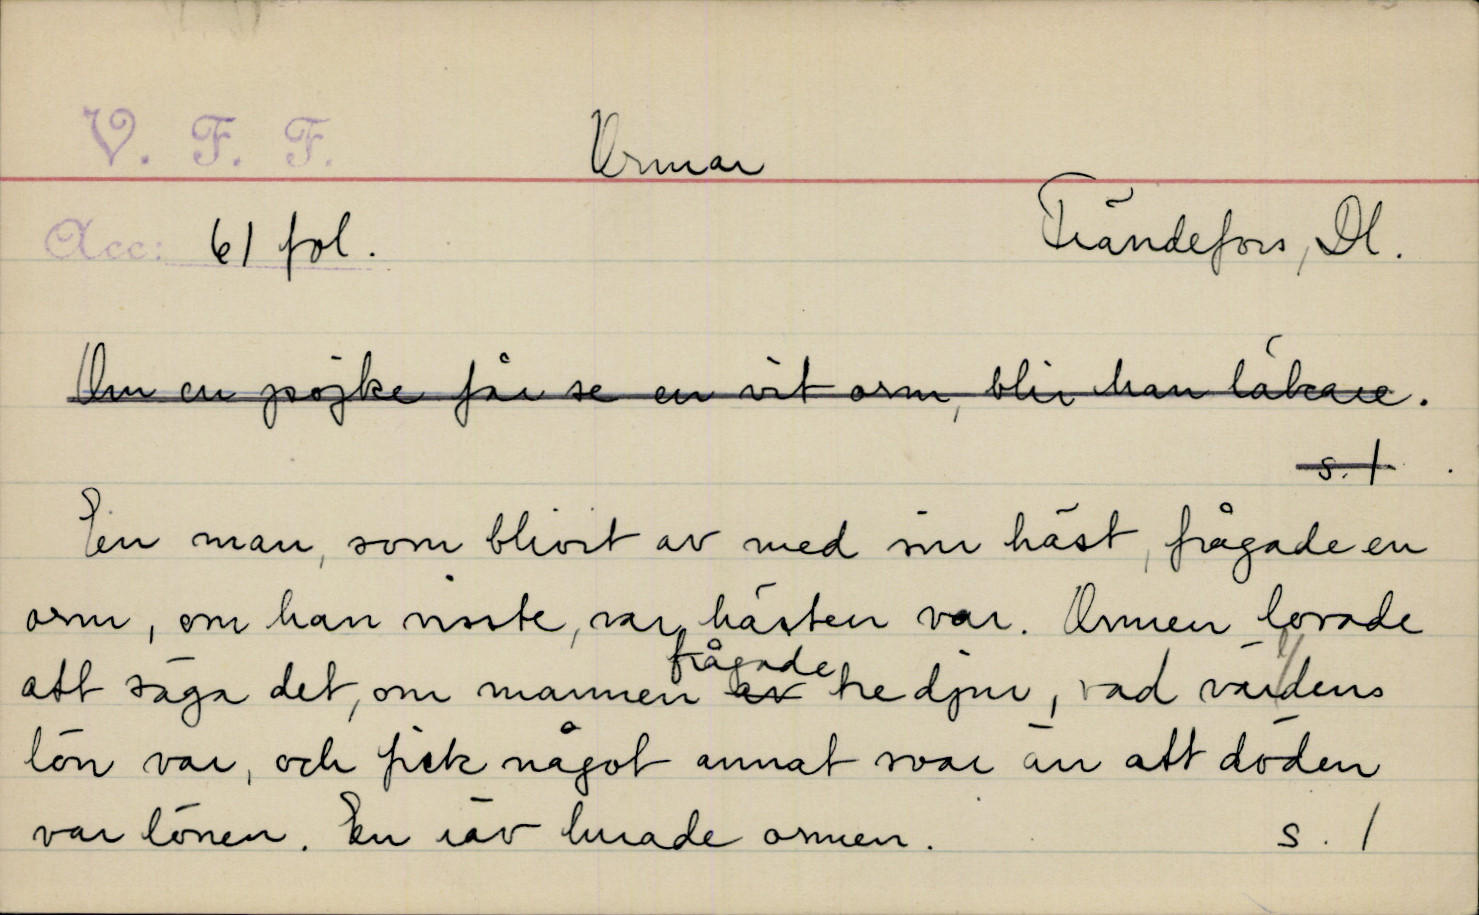 V. F. F.
Ormar
Acc: 61 fol.
Frändefors, Dl.
Om en pojke får se en vit orm, blir han läkare.
s. 1
En man, som blivit av med sin häst, frågade en
orm, om han visste, var hästen var. Ormen lovade
att säga det, om mannen av frågade tre djur, vad världens
lön var, och fick något annat svar än att döden
var lönen. En räv lurade ormen.
s. 1